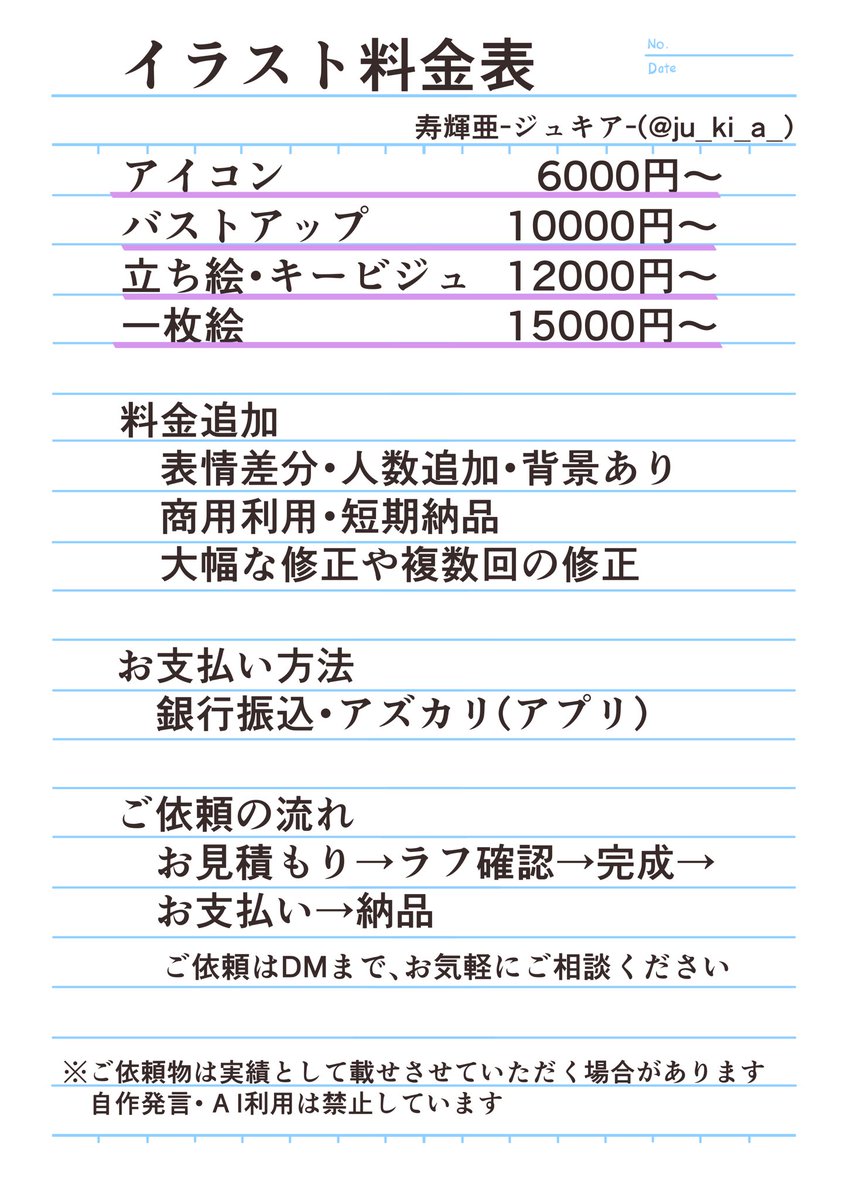 イラスト料金表
No.
Date
寿輝亜-ジュキア-(@ju_ki_a_)
アイコン 6000円～
バストアップ 10000円～
立ち絵・キービジュ 12000円～
一枚絵 15000円～
料金追加
表情差分・人数追加・背景あり
商用利用・短期納品
大幅な修正や複数回の修正
お支払い方法
銀行振込・アズカリ(アプリ)
ご依頼の流れ
お見積もり→ラフ確認→完成→
お支払い→納品
ご依頼はDMまで、お気軽にご相談ください
※ご依頼物は実績として載せさせていただく場合があります
自作発言・AI利用は禁止しています